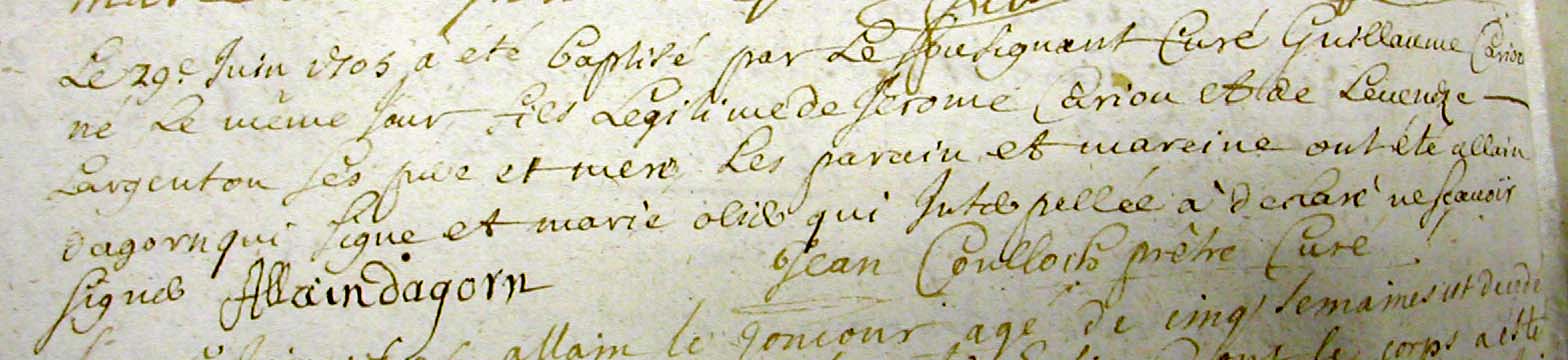 Le 29e Juin 1705 a été baptisé par Le Sousignant Curé Guillaume Cariou
né Le même Jour fils Legitime de Jerome Cariou et de Leueneze
Largenton ses pere et mere Les parain et maraine ont été allain
dagorn qui signe et marie olier qui Interpellée à declaré ne sçauoir
signer Allain dagorn Jean Coulloch prêtre Curé
allain le goncour age de cinq semaines est decedé
le corps a esté